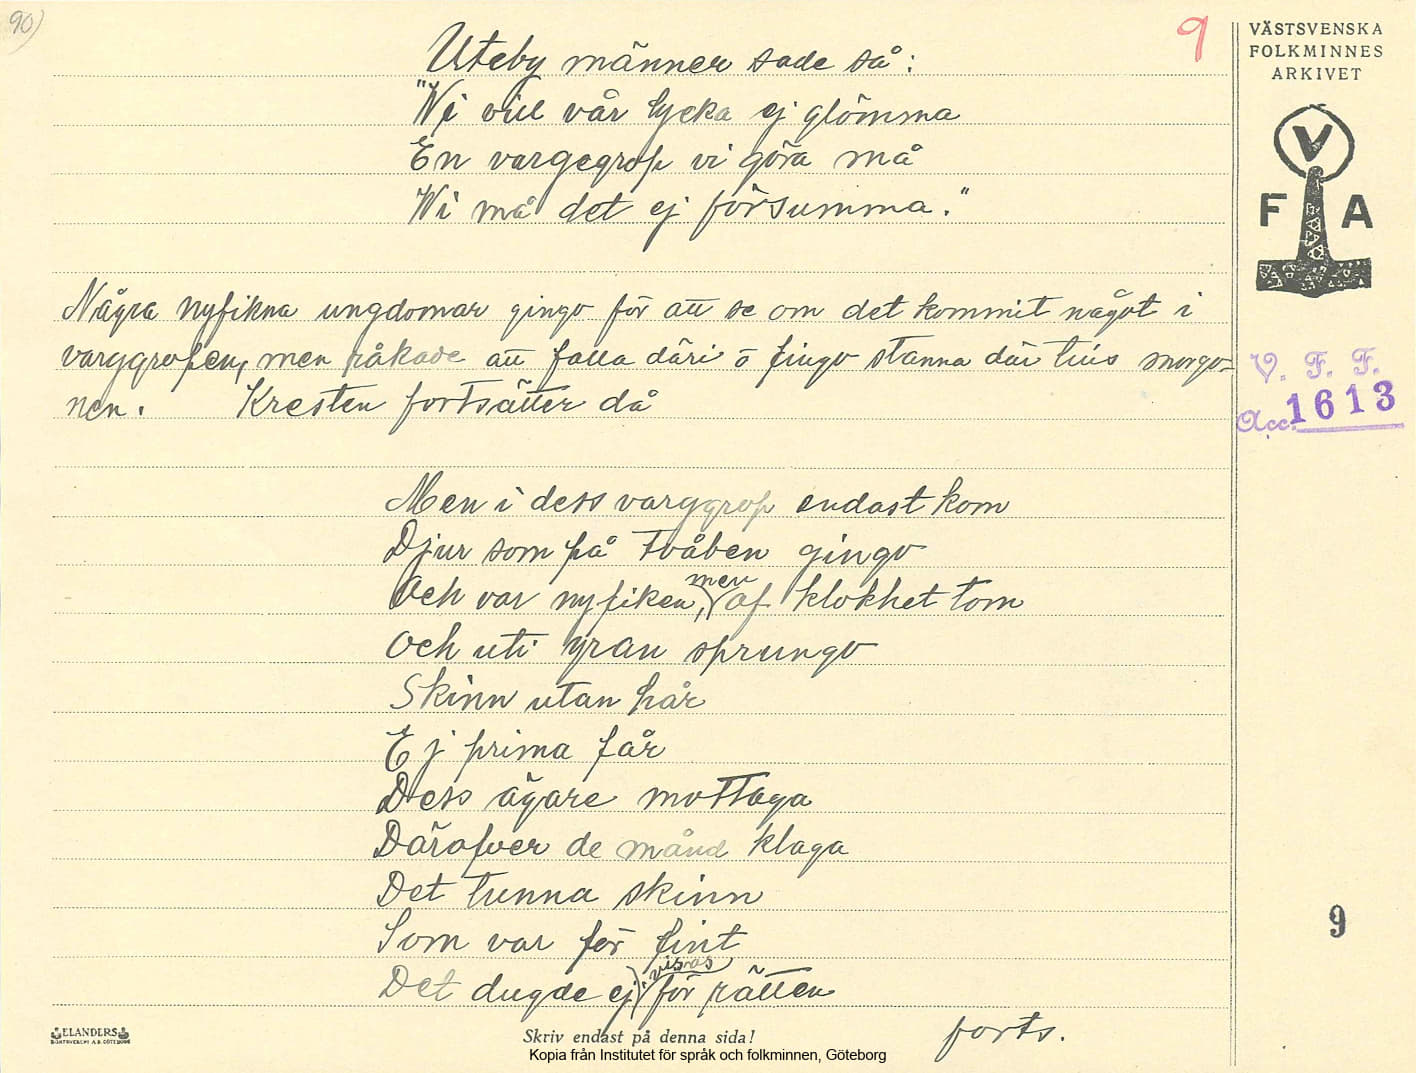 90)
9
VÄSTSVENSKA
FOLKMINNES
ARKIVET
V
F A
V. F. F.
Acc. 1613
Uteby männer sade så:
"Wi vill vår lycka ej glömma
En vargegrop vi göra må
Wi må det ej försumma."
Några nyfikna ungdomar gingo för att se om det kommit något i
varggropen, men råkade att falla däri o fingo stanna där tills morgo-
nen. Kresten fortsätter då
Men i dess varggrop endast kom
Djur som på tvåben gingo
Och var nyfiken, men af klokhet tom
Och uti yran sprungo
Skinn utan hår
Ej prima får
Dess ägare mottaga
Däröfver de månd klaga
Det tunna skinn
Som var för fint
Det dugde ej visas för rätten
forts.
9
ELANDERS
BOKTRYCKERI A.B. GÖTEBORG
Skriv endast på denna sida!
Kopia från Institutet för språk och folkminnen, Göteborg